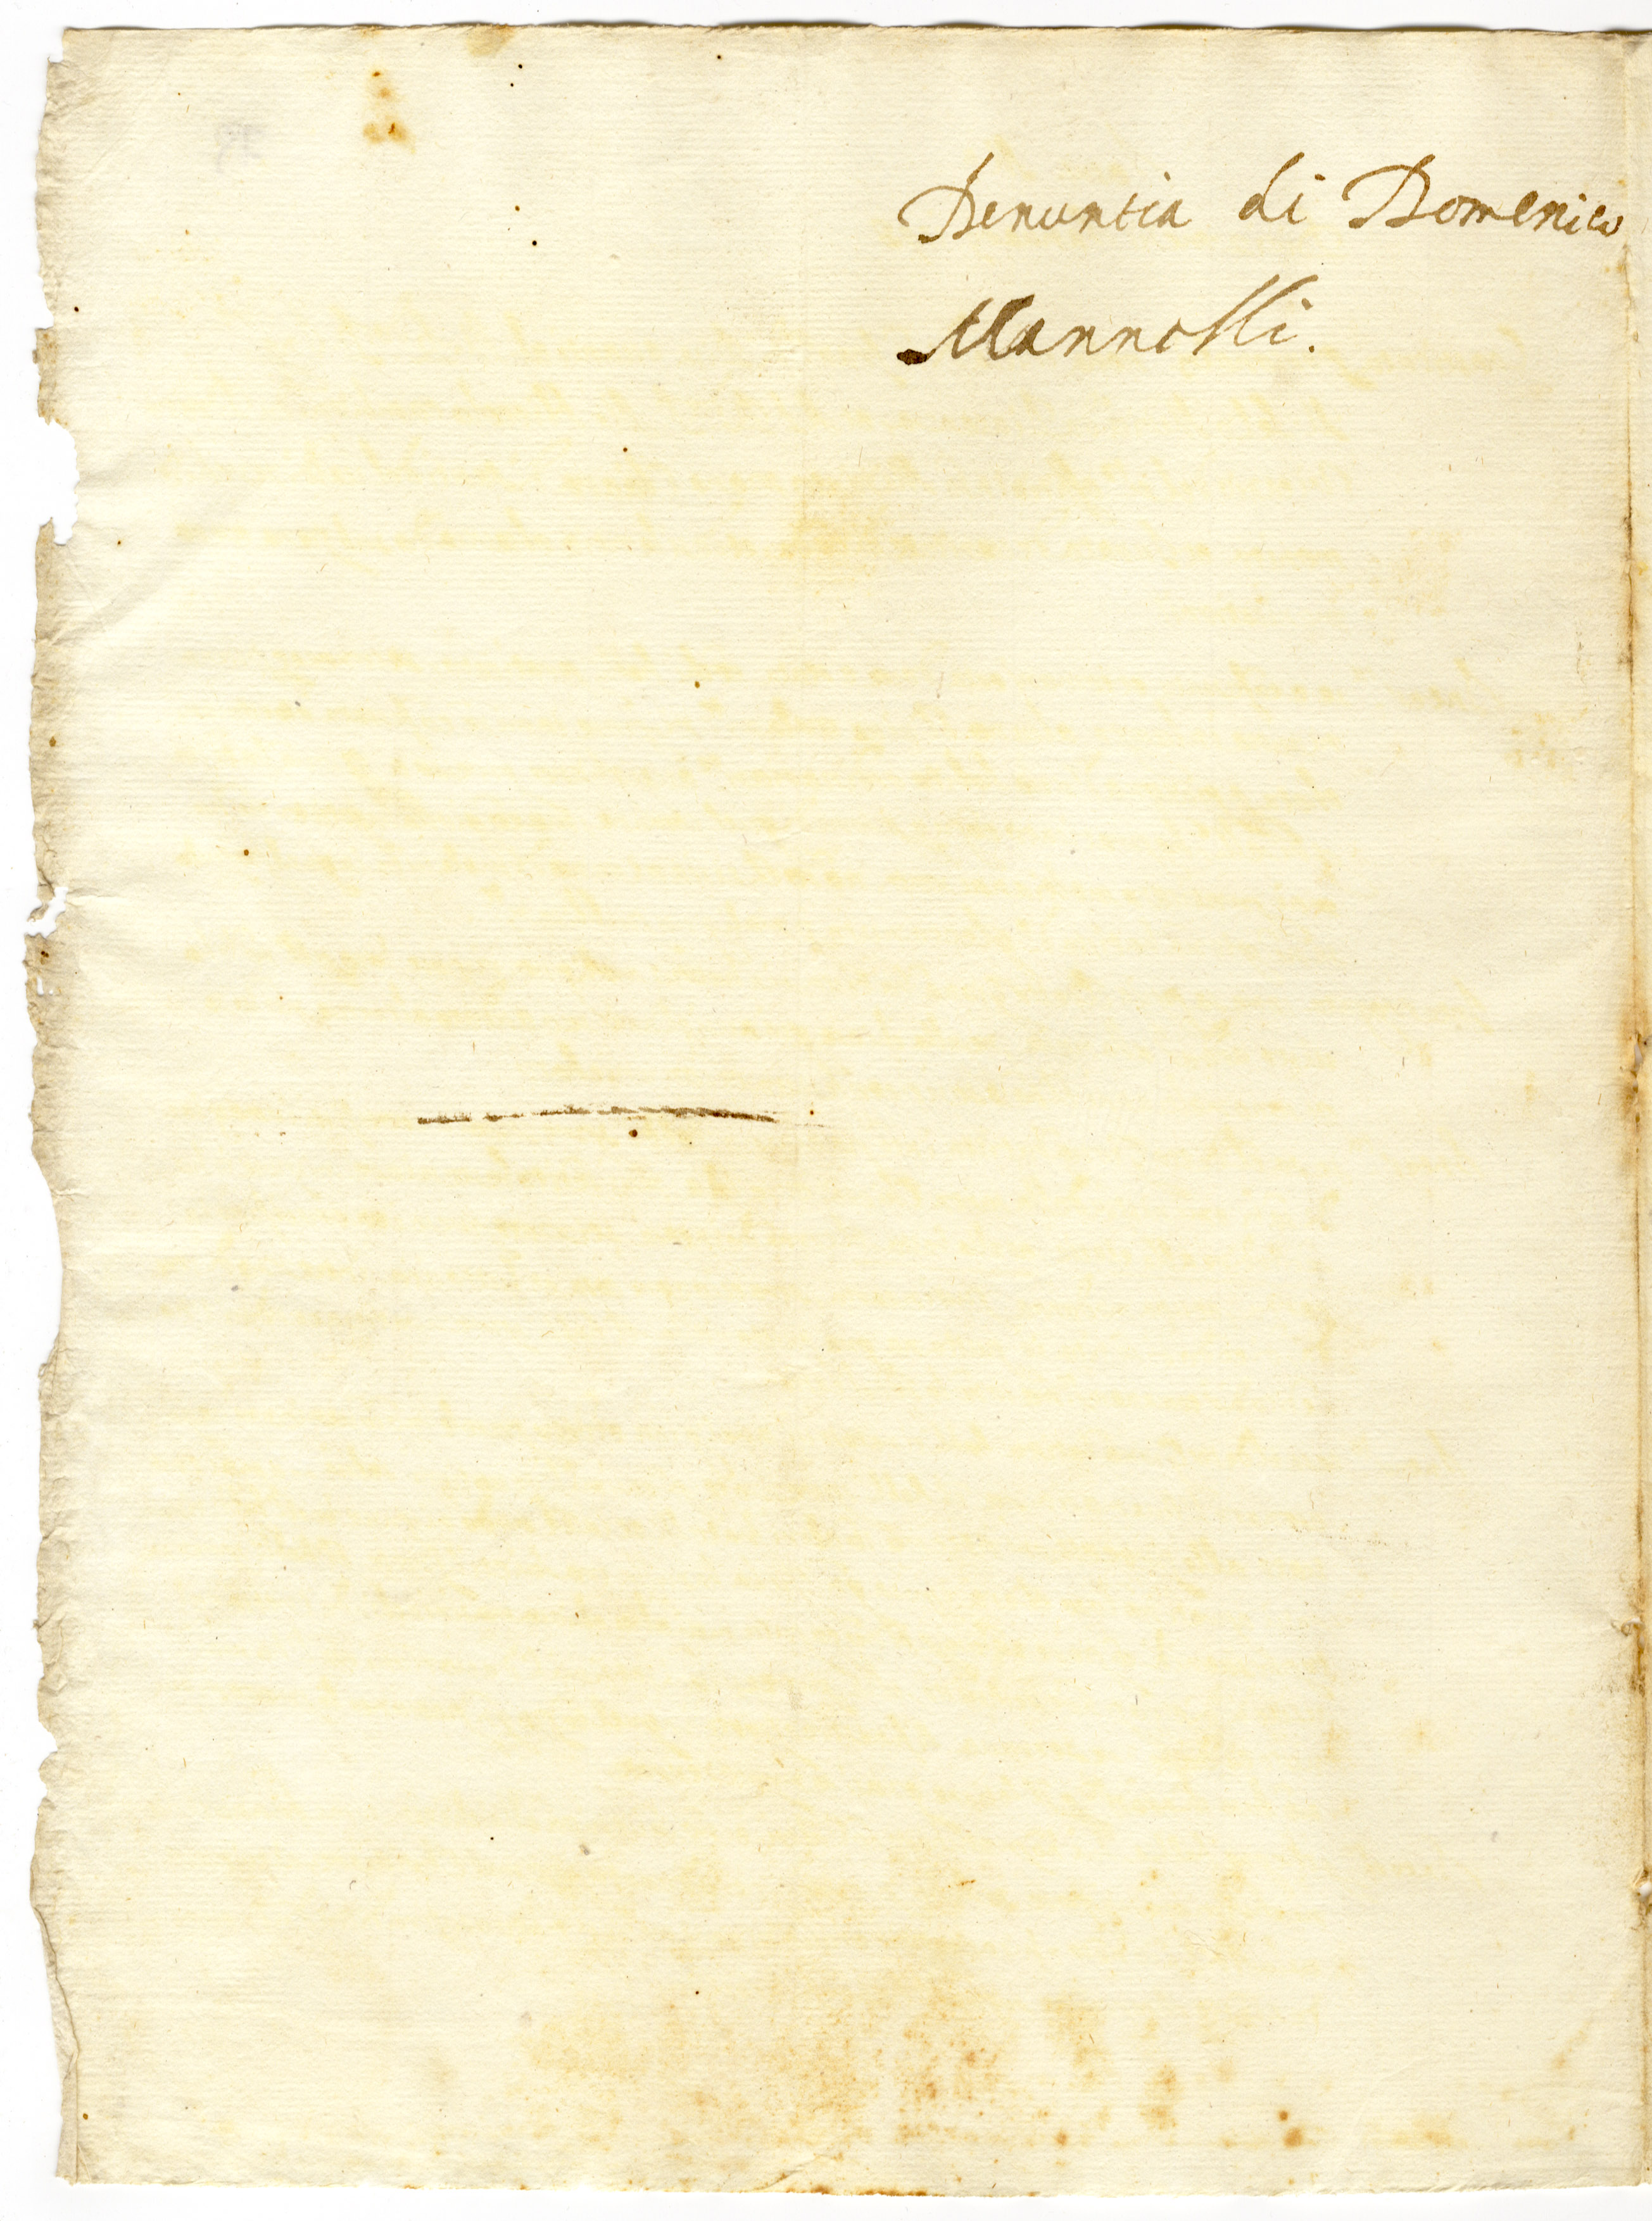 Denuntia di Domenico
Mannelli.